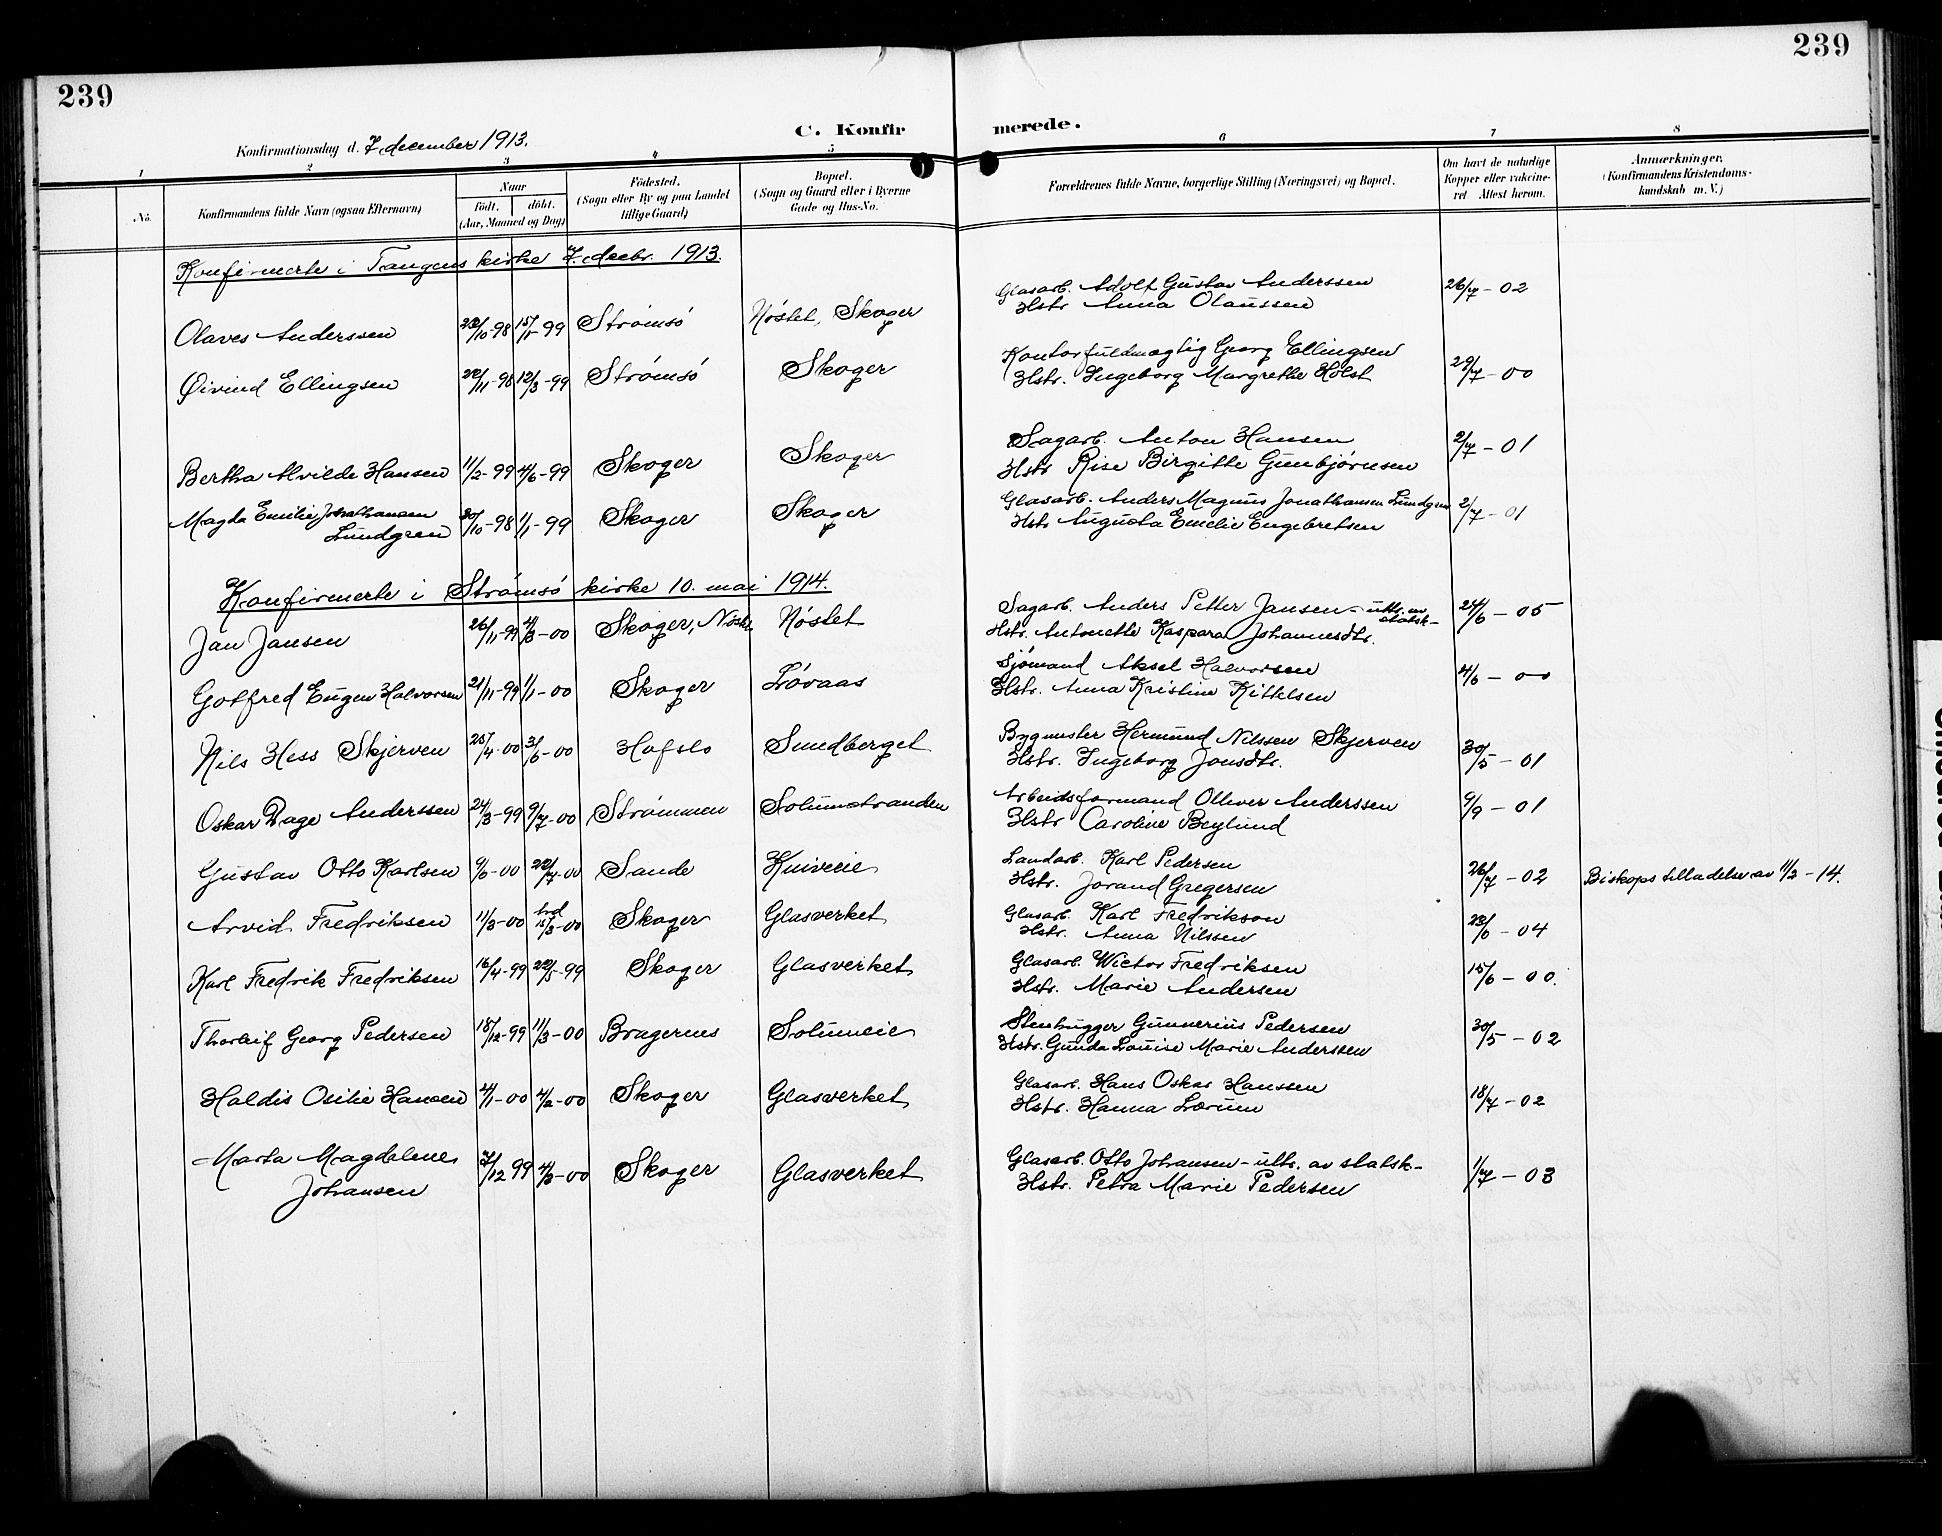 239
239
C. Konfir
merede.
Konfirmationsdag d. 7 december 1913.
1 2 3 4 5 6 7 8
No.
Konfirmandens fulde Navn (ogsaa Efternavn)
Naar
födt. döbt.
(Aar, Maaned og Dag)
Födested.
(Sogn eller By og paa Landet
tillige Gaard)
Bopæl.
(Sogn og Gaard eller i Byerne
Gade og Hus-No.
Forældrenes fulde Navne, borgerlige Stilling (Næringsvei) og Bopæl.
Om havt de naturlige
Kopper eller vakcine-
ret Attest herom.
Anmærkninger.
(Konfirmandens Kristendoms-
kundskab m. V.)
Konfirmerte i Tangens kirke 7. decbr. 1913.
Glasarb. Adolf Gustav Anderssen
Olaves Anderssen 23/10-98 15/1-99 Strømsö Nöstet, Skoger Hstr Anna Olaussen 26/7-02
Kontorfuldmægtig Georg Ellingsen
Øivind Ellingsen 22/11-98 12/3-99 Strømsö Skoger Hstr. Ingeborg Margrethe Holst 29/7-00
Sagarb. Anton Hansen
Bertha Alvilde Hansen 11/2-99 4/6-99 Skoger Skoger Hstr Rise Birgitte Gunbjørnsen 2/7-01
Magda Emilie Jonathansen Glasarb. Anders Magnus Jonathansen Lundgren
Lundgren 30/10-98 1/1-99 Skoger Skoger Hstr Augusta Emelie Engebretsen 2/7-01
Konfirmerte i Strömsö kirke 10. mai 1914.
Sagarb. Anders Petter Jansen - uttr. av statsk-
Jan Jansen 26/11-99 4/3-00 Skoger, Nöstet Nöstet Hstr. Antonette Kaspara Johannesdtr. 24/6-05
Sjömand Aksel Halvorsen
Gotfred Eugen Halvorsen 21/11-99 1/1-00 Skoger Lövaas Hstr. Anna Kristine Kittelsen 4/6-00
Bygmester Hermund Nilssen Skjerven
Nils Hess Skjerven 25/4-00 3/6-00 Hafslo Smedberget Hstr. Ingeborg Jonsdtr. 30/5-01
Arbeidsformand Olliver Anderssen
Oskar Dage Anderssen 24/3-99 9/7-00 Strømmen Solumstranden Hstr Caroline Beylund 9/9-01
Landarb. Karl Pedersen
Gustav Otto Karlsen 9/6-00 22/7-00 Sande Kniveeie Hstr. Jorand Gregersen 26/7-02 Biskops tilladelse av 11/2-14.
Glasarb. Karl Fredrikson
Arvid Fredriksen 11/3-00 15/3-00 Skoger Glasverket Hstr. Anna Nilssen 23/6-04
Glasarb. Wictor Fredriksen
Karl Fredrik Fredriksen 16/4-99 22/5-99 Skoger Glasverket Hstr. Marie Andersen 15/6-00.
Stenhugger Gunnerius Pedersen
Thorleif Georg Pedersen 18/12-99 11/3-00 Bragernes Solumeie Hstr. Gunda Louise Marie Anderssen 30/5-02
Glasarb. Hans Oskar Hanssen
Haldis Osilie Hansen 2/1-00 4/2-00 Skoger Glasverket Hstr. Hanna Lærum 18/7-02
Marta Magdalene Glasarb. Otto Johansen - uttr. av statsk-
Johansen 7/12 99 4/3-00 Skoger Glasverket Hstr. Petra Marie Pedersen 1/7-03